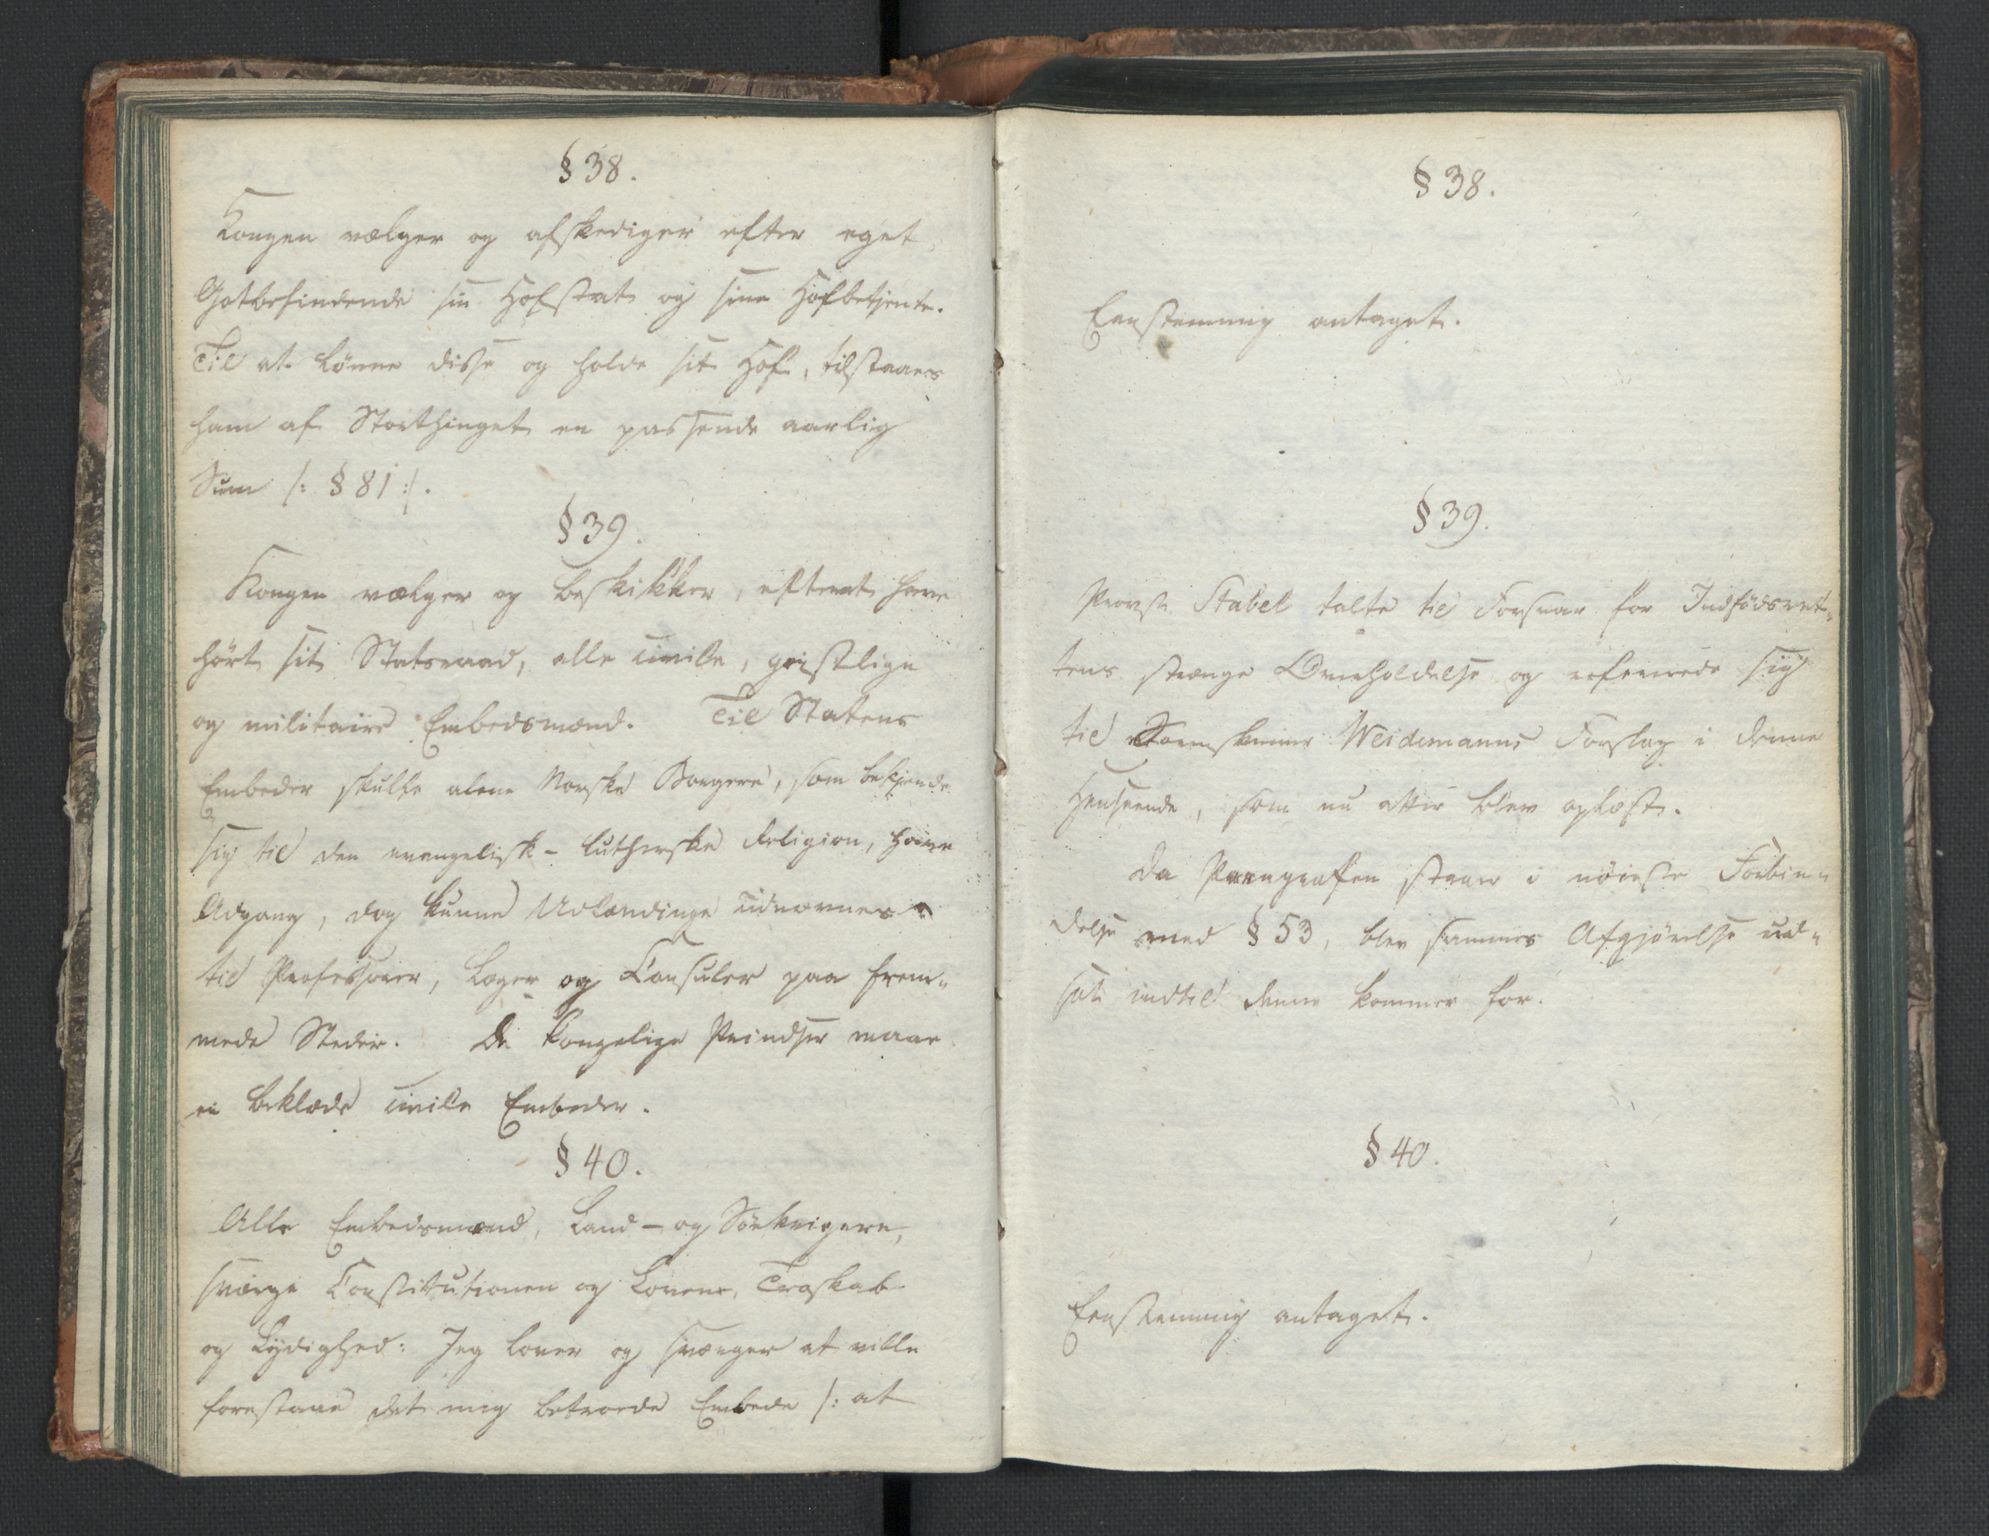 § 38.
Kongen vælger og afskediger efter eget
Gotbefindende sin Hofstat og sine Hofbetjente.
Til at lønne disse og holde sit Hof, tilstaaes
ham af Storthinget en passende aarlig
Sum /: § 81 :/.
§ 39.
Kongen vælger og beskikker, efterat have
hört sit Statsraad, alle civile, geistlige
og militaire Embedsmænd. Til Statens
Embeder skulle alene Norske Borgere, som bekjende
sig til den evangelisk-lutherske Religion, have
Adgang, dog kunne Udlændinge udnævnes
til Professorer, Læger og Consuler paa frem-
mede Steder. De kongelige Prindser maae
ei beklæde civile Embeder.
§ 40.
Alle Embedsmænd, Land- og Söekrigere,
sværge Constitutionen og Lovene, Troskab
og Lydighed: Jeg lover og sværger at ville
forestaae det mig betroede Embede /: at
§ 38.
Eenstemmig antaget.
§ 39.
Provst Stabel talte til Forsvar for Indfødsret-
tens strænge Overholdelse og refererede sig
til Sorenskriver Weidemanns Forslag i denne
Henseende, som nu atter blev oplæst.
Da Paragrafen staaer i nöieste Forbin-
delse med § 53, blev sammes Afgjörelse ud-
sat indtil denne kommer for.
§ 40.
Eenstemmig antaget.